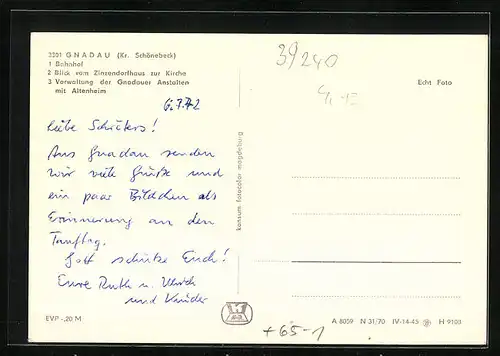 3301 GNADAU (Kr. Schönebeck)
1 Bahnhof
2 Blick vom Zinzendorfhaus zur Kirche
3 Verwaltung der Gnadauer Anstalten
mit Altenheim
39/240
Echt Foto
6.7.72
Liebe Schröters!
Aus Gnadau senden
wir viele Grüße und
ein paar Bildchen als
Erinnerung an den
Tauftag.
Gott schütze Euch!
Eure Ruth u. Ulrich
und Kinder
konsum fotocolor magdeburg
EVP -,20 M
+65-1
A 8059 N 31/70 IV-14-45 H 9103